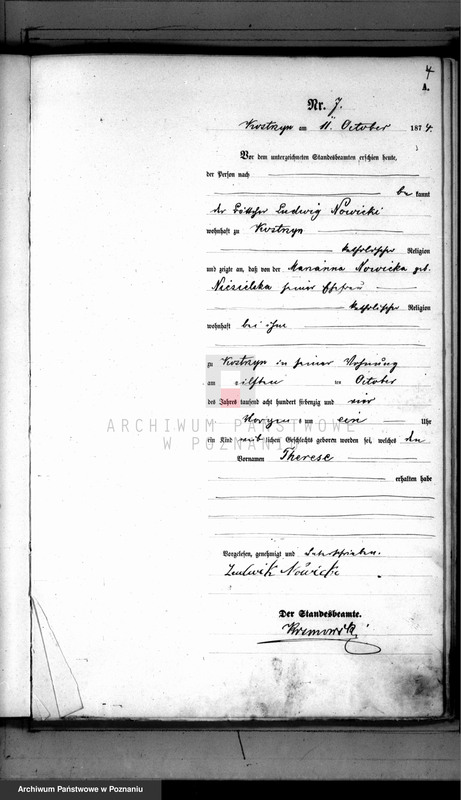 4
A.
Nr. 7.
Kostrzyn am 11. October 1874.
Vor dem unterzeichneten Standesbeamten erschien heute,
der Person nach
be kannt
der Böttcher Ludwig Nowicki
wohnhaft zu Kostrzyn
katholischer Religion
und zeigte an, daß von der Marianna Nowicka geb.
seiner Ehefrau
katholischer Religion
wohnhaft bei ihm
zu Kostrzyn in seiner Wohnung
am eilften ten October
des Jahres tausend acht hundert siebenzig und vier
Morgens um ein Uhr
ARCHIWUM PAŃSTWOWE
W POZNANIU
ein Kind weiblichen Geschlechts geboren worden sei, welches den
Vornamen Therese
erhalten habe
Vorgelesen, genehmigt und unterschrieben.
Ludwik Nowicki
Der Standesbeamte.
Archiwum Państwowe w Poznaniu